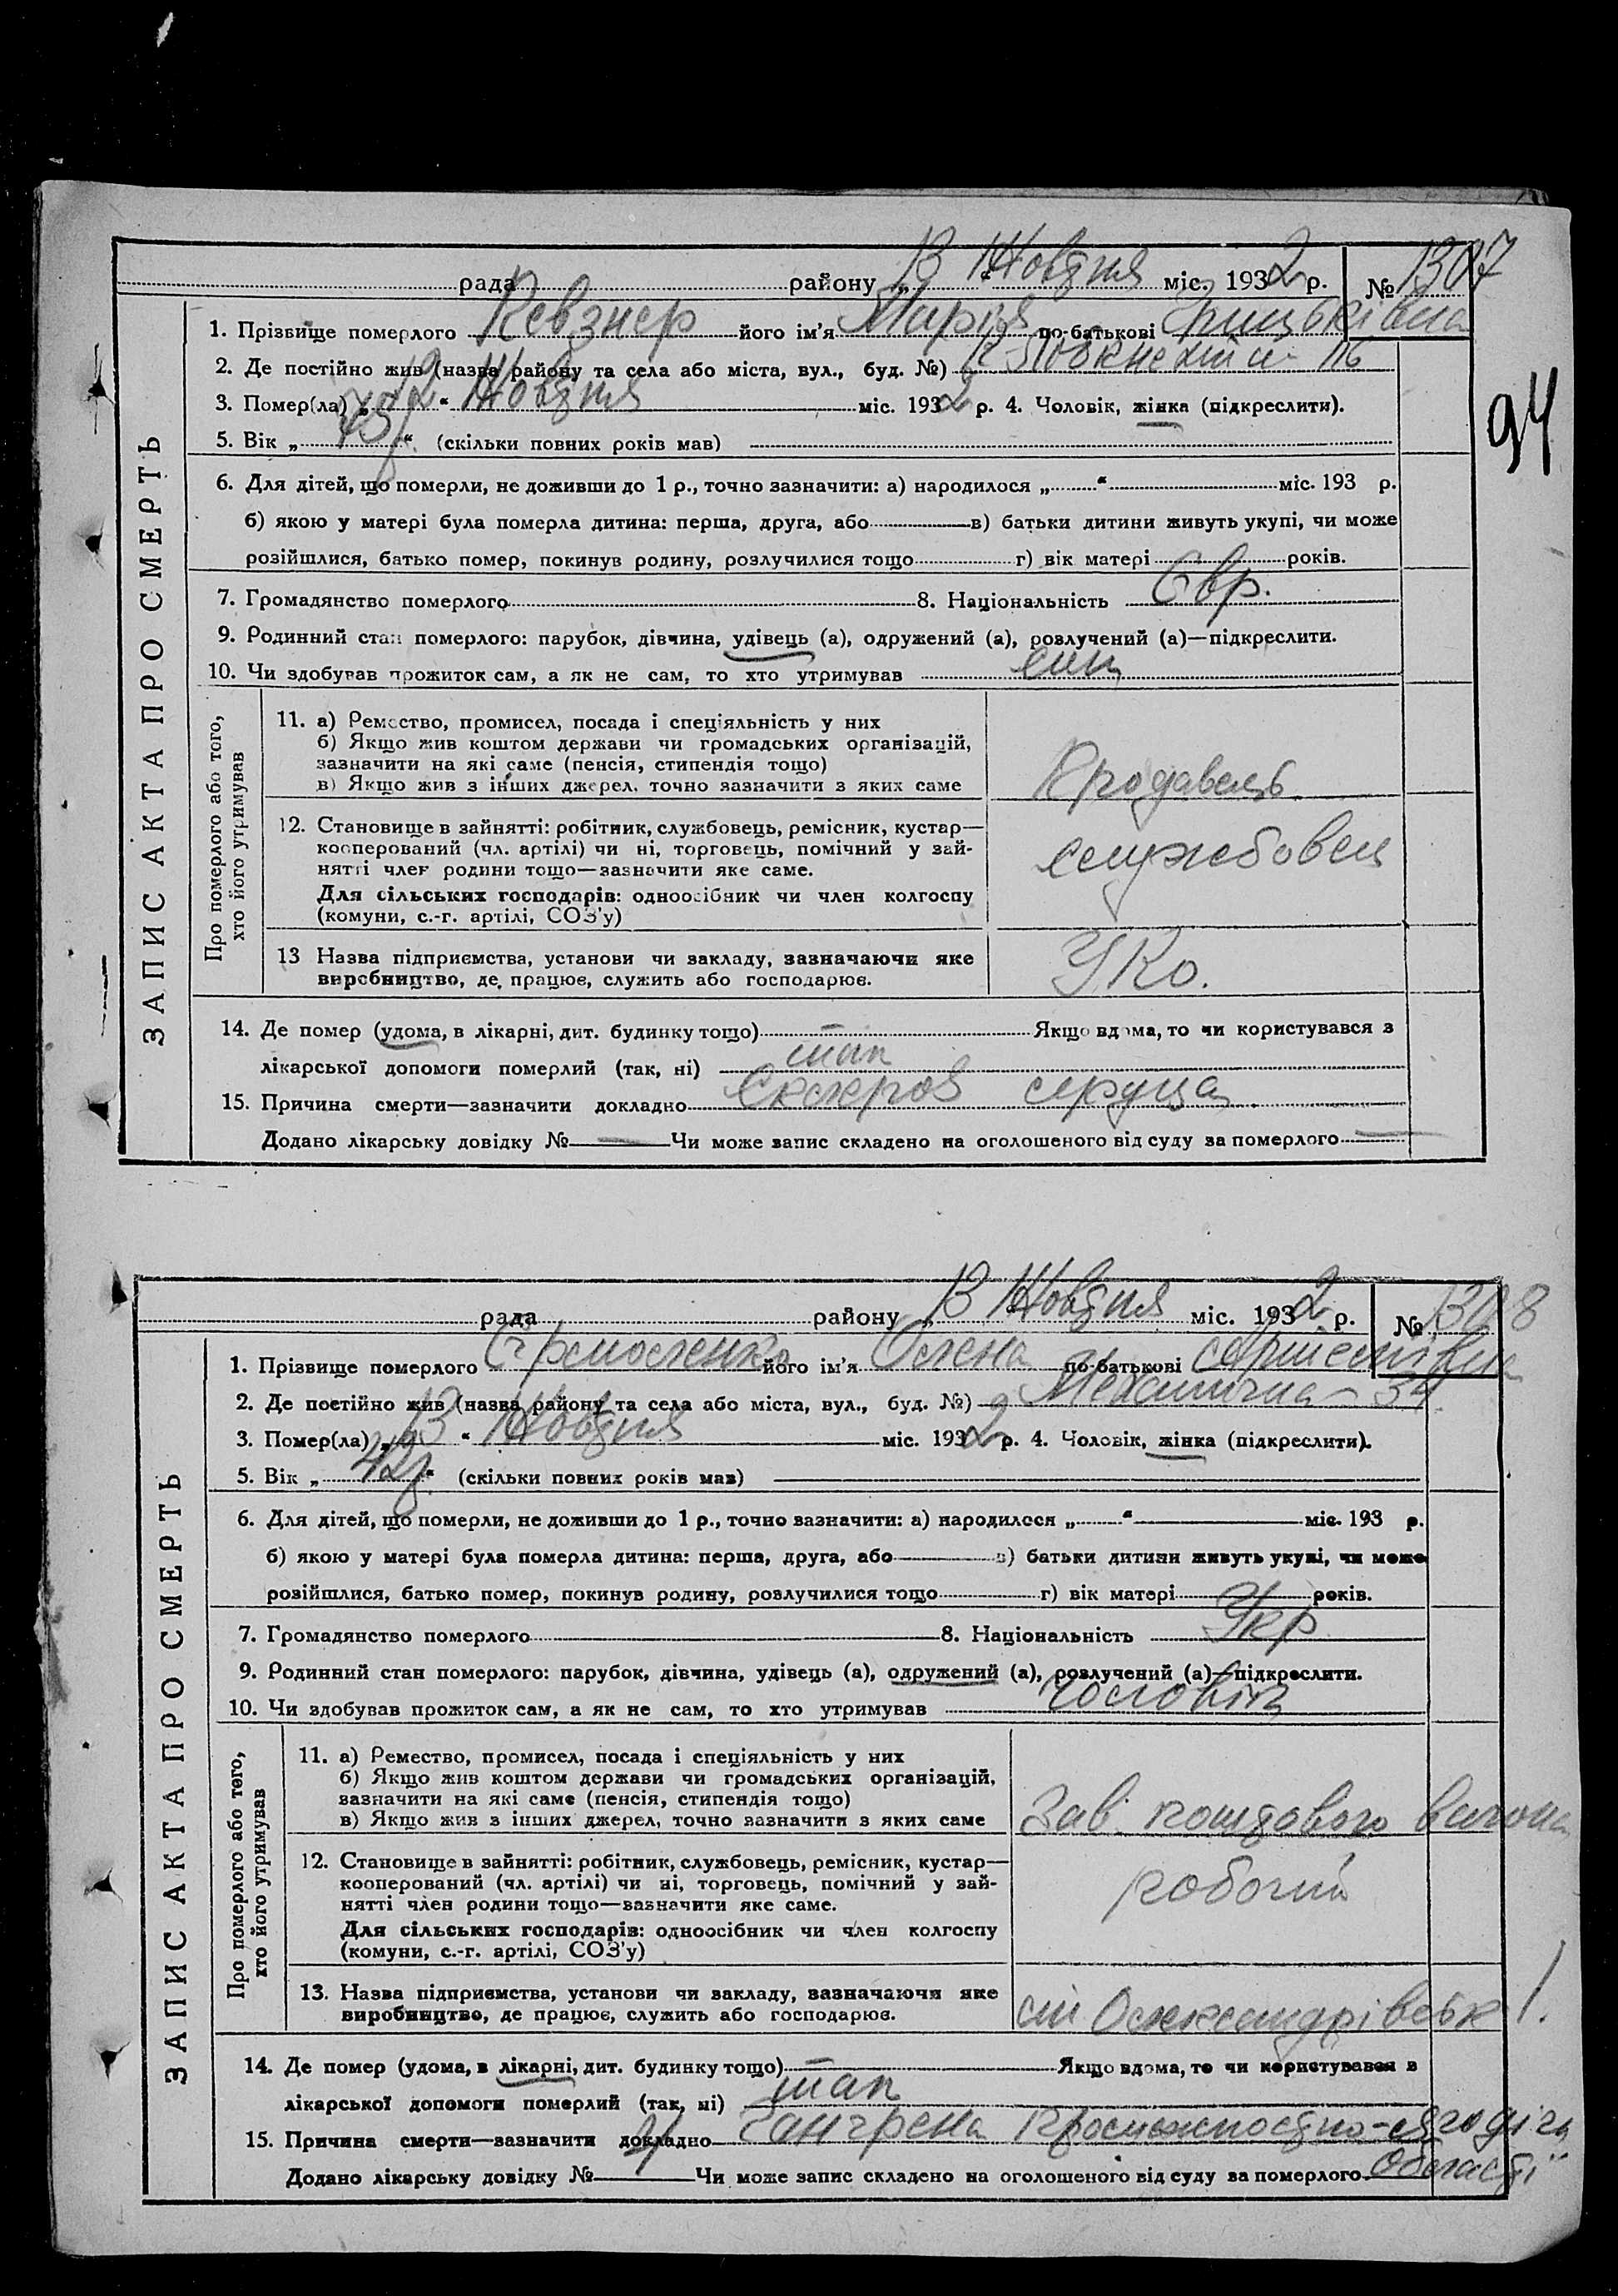 рада району „13“ Жовтня міс. 1932 р. № 1307
1. Прізвище померлого Певзнер його ім'я Марія по-батькові
2. Де постійно жив (назва району та села або міста, вул., буд. №) 116
3. Помер(ла) „12“ Жовтня міс. 1932 р. 4. Чоловік, жінка (підкреслити).
5. Вік „75 р.“ (скільки повних років мав)
6. Для дітей, що померли, не доживши до 1 р., точно зазначити: а) народилося „ “ міс. 193 р.
б) якою у матері була померла дитина: перша, друга, або в) батьки дитини живуть укупі, чи може
розійшлися, батько помер, покинув родину, розлучилися тощо г) вік матері років.
7. Громадянство померлого 8. Національність Євр.
9. Родинний стан померлого: парубок, дівчина, удівець (а), одружений (а), розлучений (а)—підкреслити.
10. Чи здобував прожиток сам, а як не сам, то хто утримував син
ЗАПИС АКТА ПРО СМЕРТЬ
Про померлого або того,
хто його утримував
11. а) Ремество, промисел, посада і спеціяльність у них
б) Якщо жив коштом держави чи громадських організацій,
зазначити на які саме (пенсія, стипендія тощо)
в) Якщо жив з інших джерел, точно зазначити з яких саме
Продавець
12. Становище в зайнятті: робітник, службовець, ремісник, кустар—
кооперований (чл. артілі) чи ні, торговець, помічний у зай-
нятті член родини тощо—зазначити яке саме.
Для сільських господарів: одноосібник чи член колгоспу
(комуни, с.-г. артілі, СОЗ'у)
службовец
13 Назва підприємства, установи чи закладу, зазначаючи яке
виробництво, де працює, служить або господарює.
14. Де помер (удома, в лікарні, дит. будинку тощо) — Якщо вдома, то чи користувався з
лікарської допомоги померлий (так, ні) так
15. Причина смерти—зазначити докладно Склероз сердца
Додано лікарську довідку № — Чи може запис складено на оголошеного від суду за померлого —
94
рада району „13“ Жовтня міс. 1932 р. № 1308
1. Прізвище померлого його ім'я Олена по-батькові
2. Де постійно жив (назва району та села або міста, вул., буд. №) 34
3. Помер(ла) „13“ Жовтня міс. 1932 р. 4. Чоловік, жінка (підкреслити).
5. Вік „42 р.“ (скільки повних років мав)
6. Для дітей, що померли, не доживши до 1 р., точно зазначити: а) народилося „ “ міс. 193 р.
б) якою у матері була померла дитина: перша, друга, або в) батьки дитини живуть укупі, чи може
розійшлися, батько помер, покинув родину, розлучилися тощо г) вік матері років.
7. Громадянство померлого 8. Національність Укр
9. Родинний стан померлого: парубок, дівчина, удівець (а), одружений (а), розлучений (а)—підкреслити.
10. Чи здобував прожиток сам, а як не сам, то хто утримував чоловік
ЗАПИС АКТА ПРО СМЕРТЬ
Про померлого або того,
хто його утримував
11. а) Ремество, промисел, посада і спеціяльність у них
б) Якщо жив коштом держави чи громадських організацій,
зазначити на які саме (пенсія, стипендія тощо)
в) Якщо жив з інших джерел, точно зазначити з яких саме
Зав. поштового вагона
12. Становище в зайнятті: робітник, службовець, ремісник, кустар—
кооперований (чл. артілі) чи ні, торговець, помічний у зай-
нятті член родини тощо—зазначити яке саме.
Для сільських господарів: одноосібник чи член колгоспу
(комуни, с.-г. артілі, СОЗ'у)
робочий
13. Назва підприємства, установи чи закладу, зазначаючи яке
виробництво, де працює, служить або господарює.
ст Олександрівськ 1.
14. Де помер (удома, в лікарні, дит. будинку тощо) — Якщо вдома, то чи користувався з
лікарської допомоги померлий (так, ні) так
15. Причина смерти—зазначити докладно Гангрена
Додано лікарську довідку № Чи може запис складено на оголошеного від суду за померлого
області